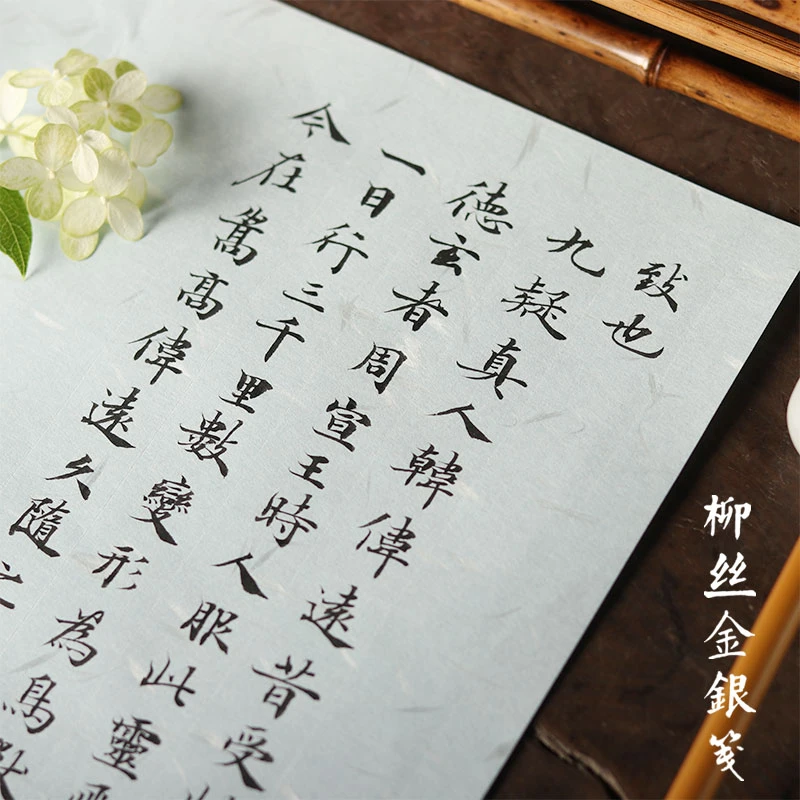 致也
九疑真人韓偉遠昔受
德玄者周宣王時人服此靈
一日行三千里數變形為鳥
今在嵩高偉遠久隨之
柳丝金銀箋